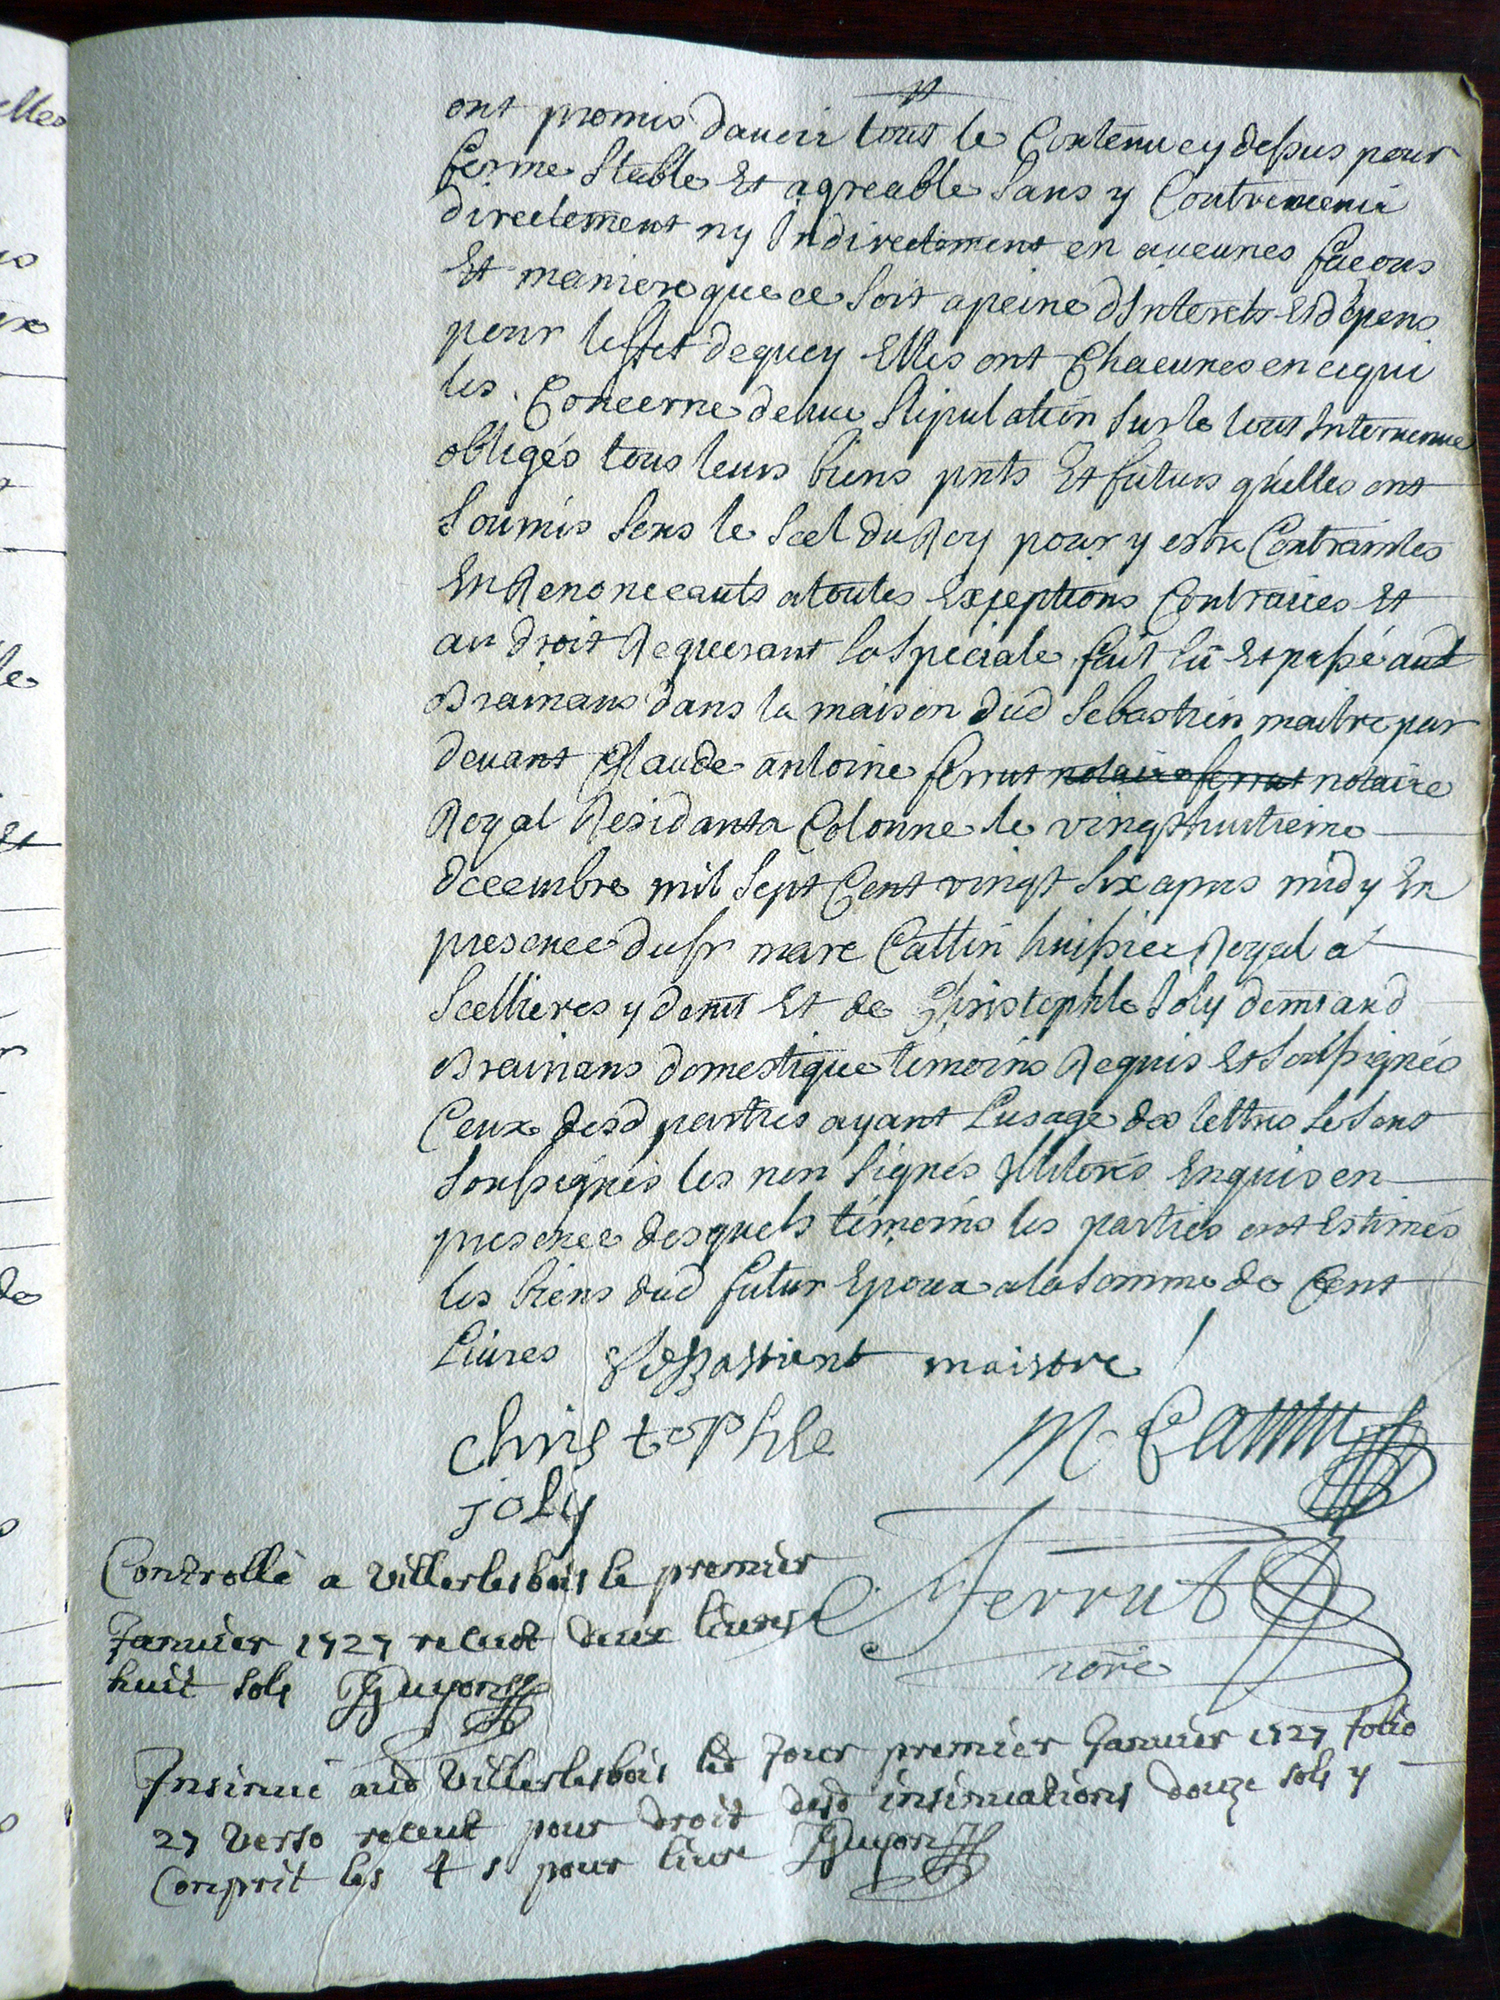 ont promis davoir tout le Contenu cy dessus pour
ferme stable Et agreable sans y Contrevenir
directement ny Indirectement en aucunes facons
Et maniere que ce soit a peine dInterets Et dépens
pour leffet de quoy Elles ont Chacunes en ce qui
les Concerne deüue stipulation sur le tout Intervenue
obligés tous leurs biens pnts Et futurs quelles ont
soumis sous le scel du Roy pour y estre Contraintes
En Renonceants a toutes Exceptions Contraires Et
au droit Requerant la speciale fait lû Et passé aud
Brainans dans la maison dud Sebastien maitre par
devant Claude antoine ferrut notaire ferrut notaire
Royal Residant a Colonne le vingt huitieme
decembre mil sept Cent vingt six apres midy En
presence du sr marc Cattin huissier Royal a
Scellieres y demt Et de Christophle Joly demt aud
Brainans domestique temoins Requis Et soussignés
Ceux desd parties ayant Lusage des lettres se sont
soussignés les non signés Illiterés Enquis en
presence desquels témoins les parties ont Estimés
les biens dud futur Epoux a la somme de Cent
Livres Sebastient maistre
christophle M Cattin
joly
Controllé a Villerslesbois le premier
Janvier 1727 receut deux livres Ferrut
huit sols Guyon nore
Insinué aud Villerslesbois led Jour premier Janvier 1727 folio
27 verso receut pour droit desd insinuations douze sols y
Comprit les 4 s pour livre Guyon